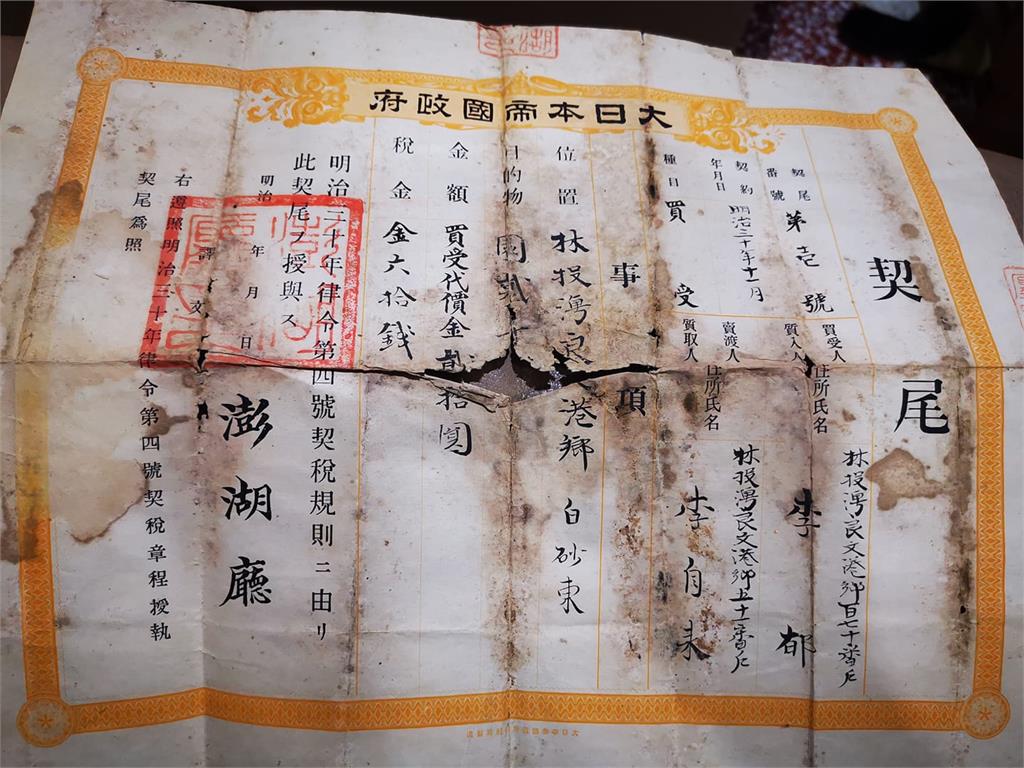 大日本帝國政府
契尾
契尾番號 第壱號
契約年月日 明治三十年十一月
種目 買受
買受人
質入人
住所氏名
林投灣良文港鄉百七十番戶
李郁
賣渡人
質取人
住所氏名
林投灣良文港鄉
番戶
李自来
事項
位置 林投灣良 港鄉 白砂東
目的物 園
金額 買受代價金 拾圓
稅金 金六拾錢
明治三十年律令第四號契稅規則ニ由リ
此契尾ヲ授與ス
明治 年 月 日
澎湖廳
譯文
右遵照明治三十年律令第四號契稅章程授執
契尾爲照